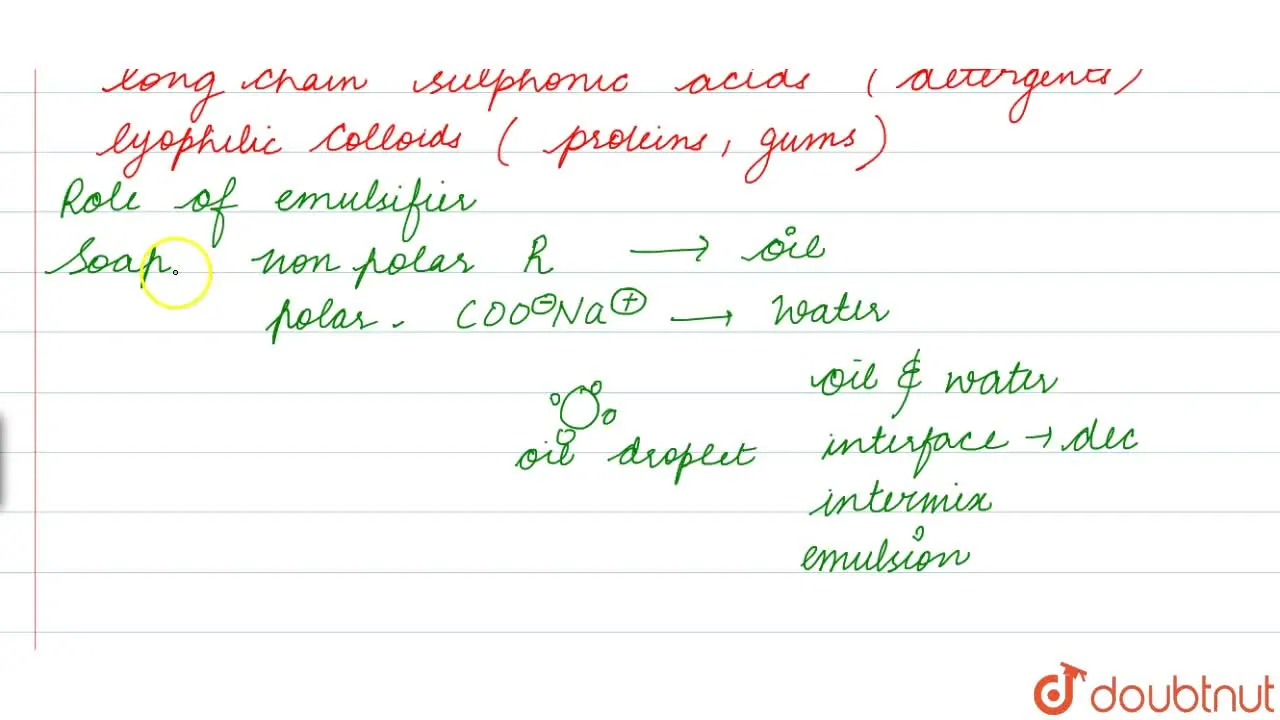 long chain sulphonic acids (detergents)
lyophilic colloids ( proteins, gums)
Role of emulsifier
Soap. non polar R → oil
polar. COO⊖Na⊕ → water
oil & water
oil droplet
interface → dec
intermix
emulsion
doubtnut